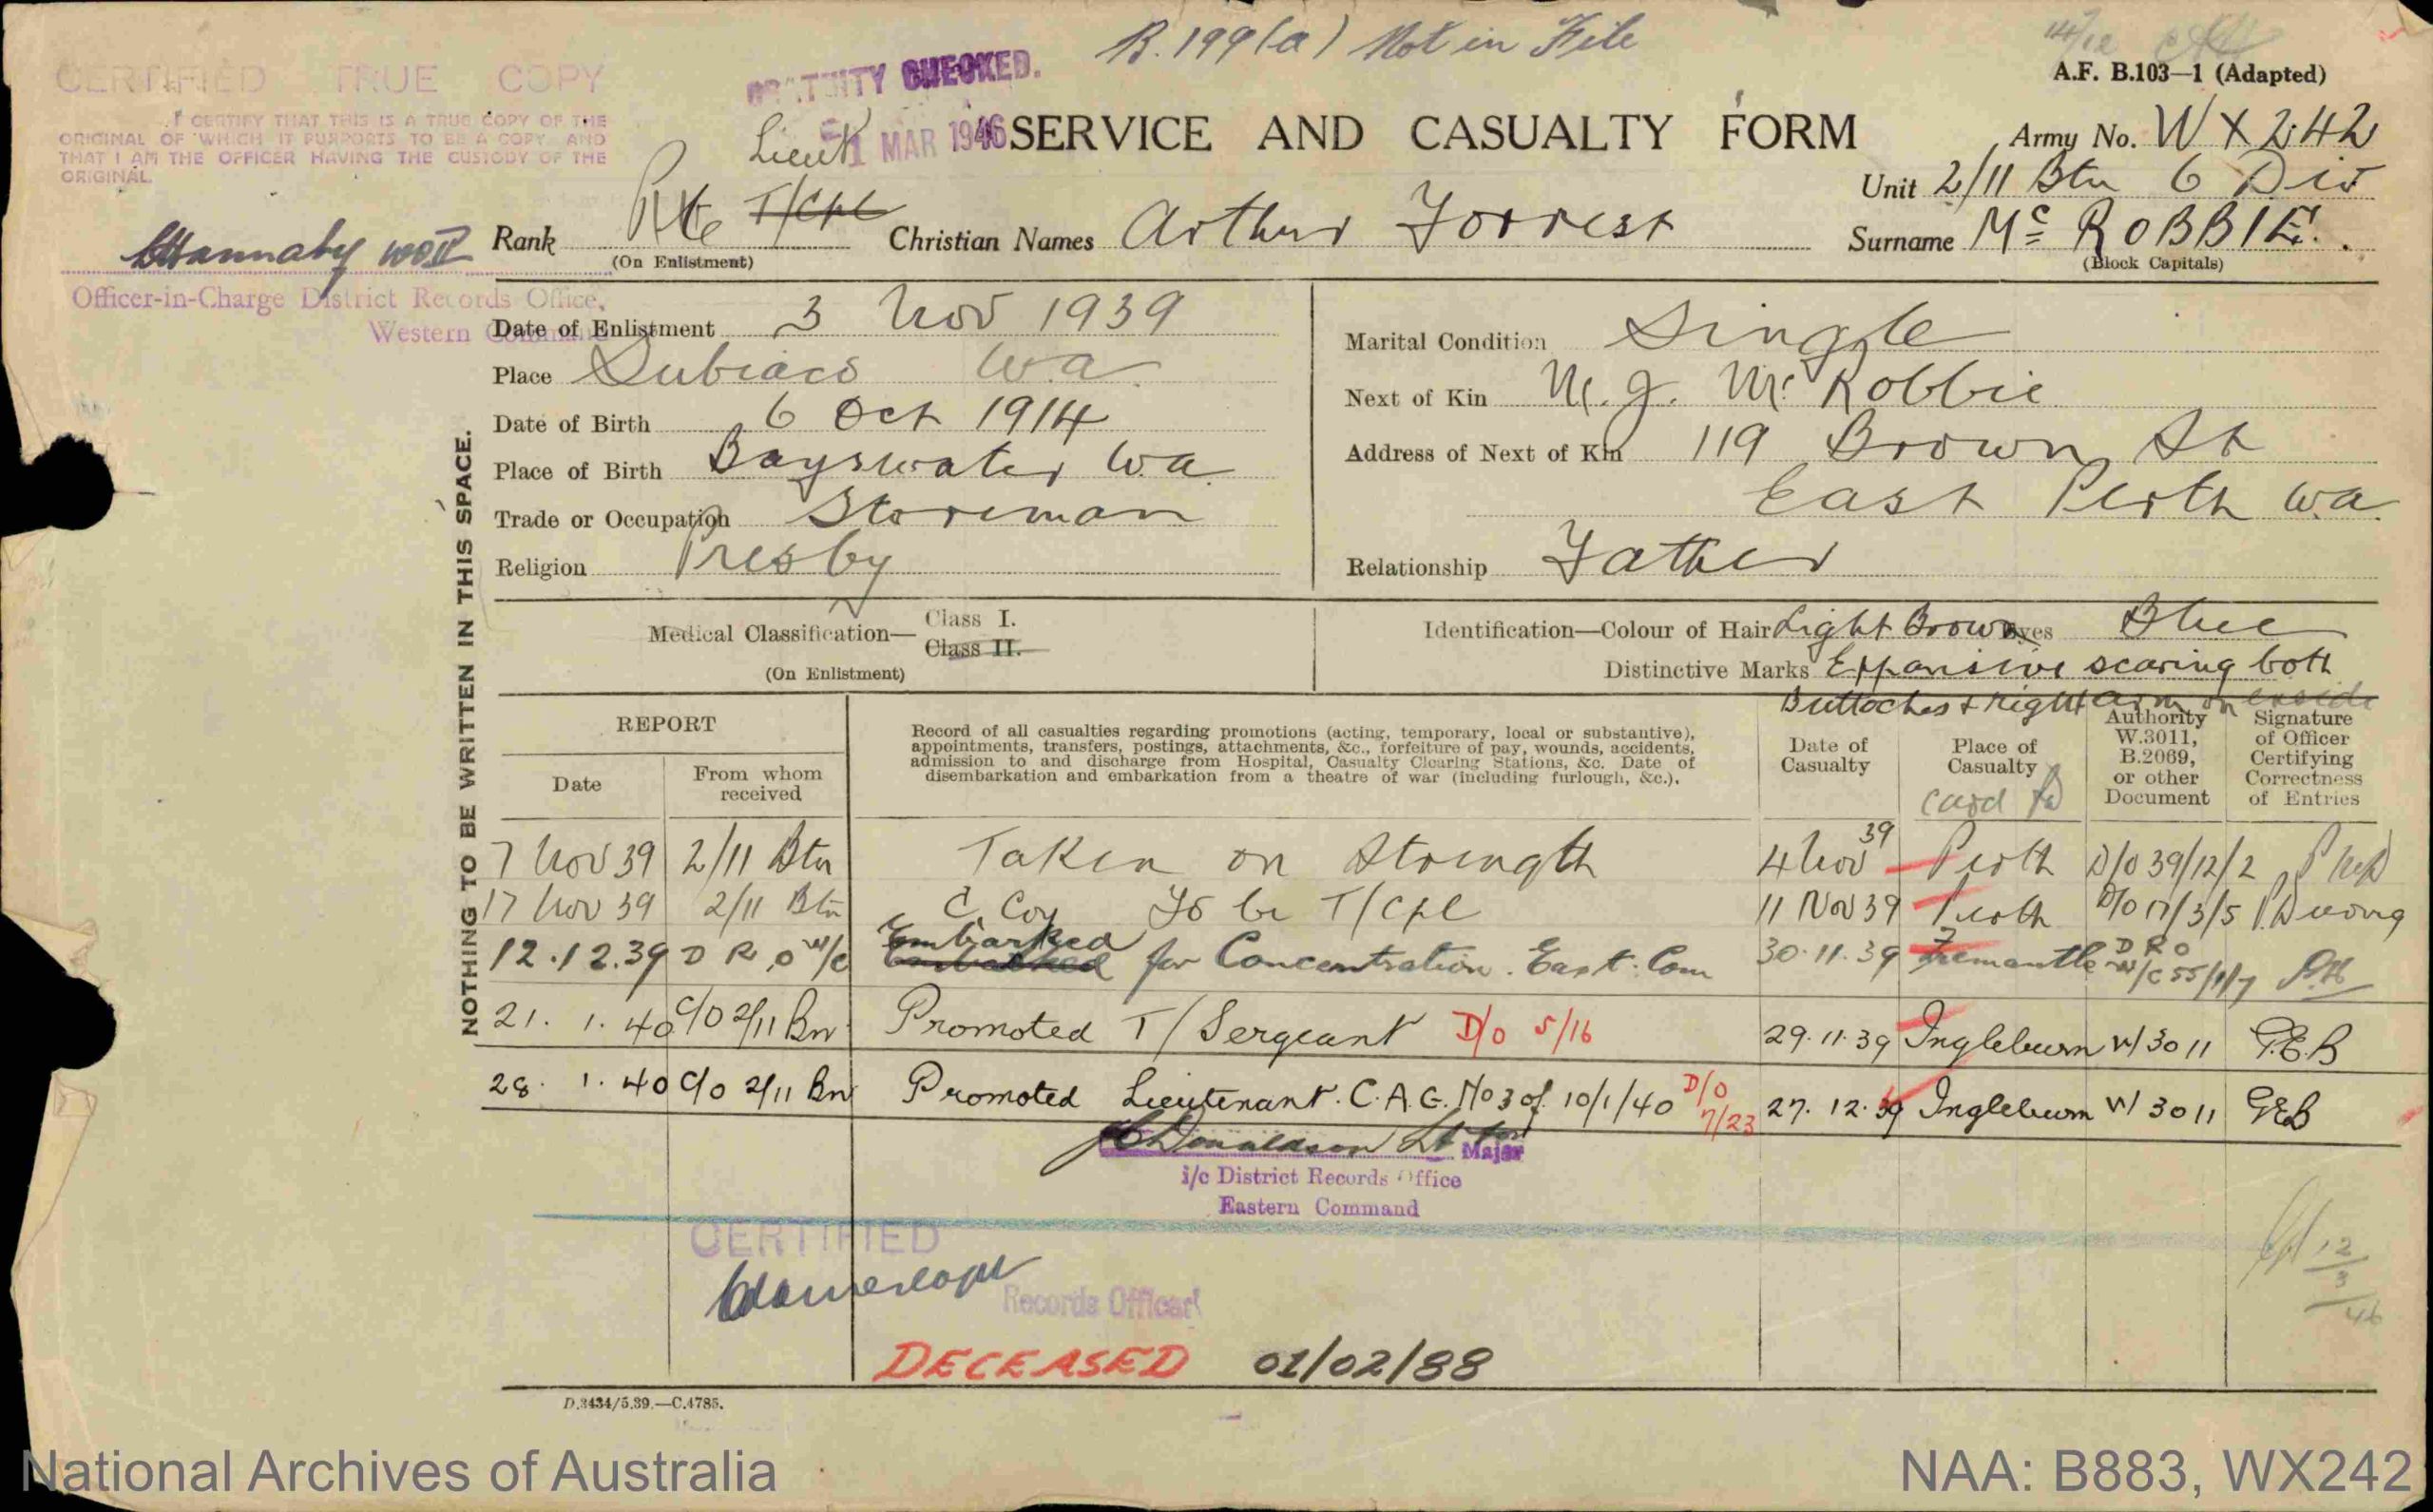 B.199(a) Not in File
A.F. B.103—1 (Adapted)
CERTIFIED TRUE COPY
I CERTIFY THAT THIS IS A TRUE COPY OF THE
ORIGINAL OF WHICH IT PURPORTS TO BE A COPY AND
THAT I AM THE OFFICER HAVING THE CUSTODY OF THE
ORIGINAL.
WO II
Officer-in-Charge District Records Office,
Western Command
GRATUITY CHECKED.
1 MAR 1946
SERVICE AND CASUALTY FORM
Army No. WX242
Unit 2/11 Btn 6 Div
Lieut
Rank Pte T/Cpl
(On Enlistment)
Christian Names Arthur Forrest
Surname Mc ROBBIE.
(Block Capitals)
NOTHING TO BE WRITTEN IN THIS SPACE.
Date of Enlistment 3 Nov 1939
Place Subiaco W.a.
Date of Birth 6 Oct 1914
Place of Birth Bayswater W.a.
Trade or Occupation Storeman
Religion Presby
Marital Condition Single
Next of Kin M. J. Mc Robbie
Address of Next of Kin 119 Brown St
East Perth W.a.
Relationship Father
Medical Classification— Class I.
Class II.
(On Enlistment)
Identification—Colour of Hair Light Brown Eyes Blue
Distinctive Marks Expansive scaring both
Buttoches & right arm on
REPORT
Date
From whom received
Record of all casualties regarding promotions (acting, temporary, local or substantive),
appointments, transfers, postings, attachments, &c., forfeiture of pay, wounds, accidents,
admission to and discharge from Hospital, Casualty Clearing Stations, &c. Date of
disembarkation and embarkation from a theatre of war (including furlough, &c.).
Date of Casualty
Place of Casualty
card
Authority W.3011, B.2069, or other Document
Signature of Officer Certifying Correctness of Entries
7 Nov 39 2/11 Btn Taken on Strength 4 Nov 39 Perth D/O 39/12/2
17 Nov 39 2/11 Btn C Coy To be T/Cpl 11 Nov 39 Perth D/O 17/3/5
12.12.39 D R O W/C Embarked Embarked for Concentration. East. Com 30.11.39 Fremantle D R O W/C 55/1/7
21. 1. 40 C/O 2/11 Bn Promoted T/Sergeant D/O 5/16 29.11.39 Ingleburn W3011 G.E.B
28. 1. 40 C/O 2/11 Bn Promoted Lieutenant. C.A.G. No 3 of 10/1/40 D/O 7/23 27.12.39 Ingleburn W3011 GEB
Donaldson Lt for Major
i/c District Records Office
Eastern Command
CERTIFIED
Records Officer
12/3/46
DECEASED 01/02/88
D.3434/5.39.—C.4785.
National Archives of Australia
NAA: B883, WX242